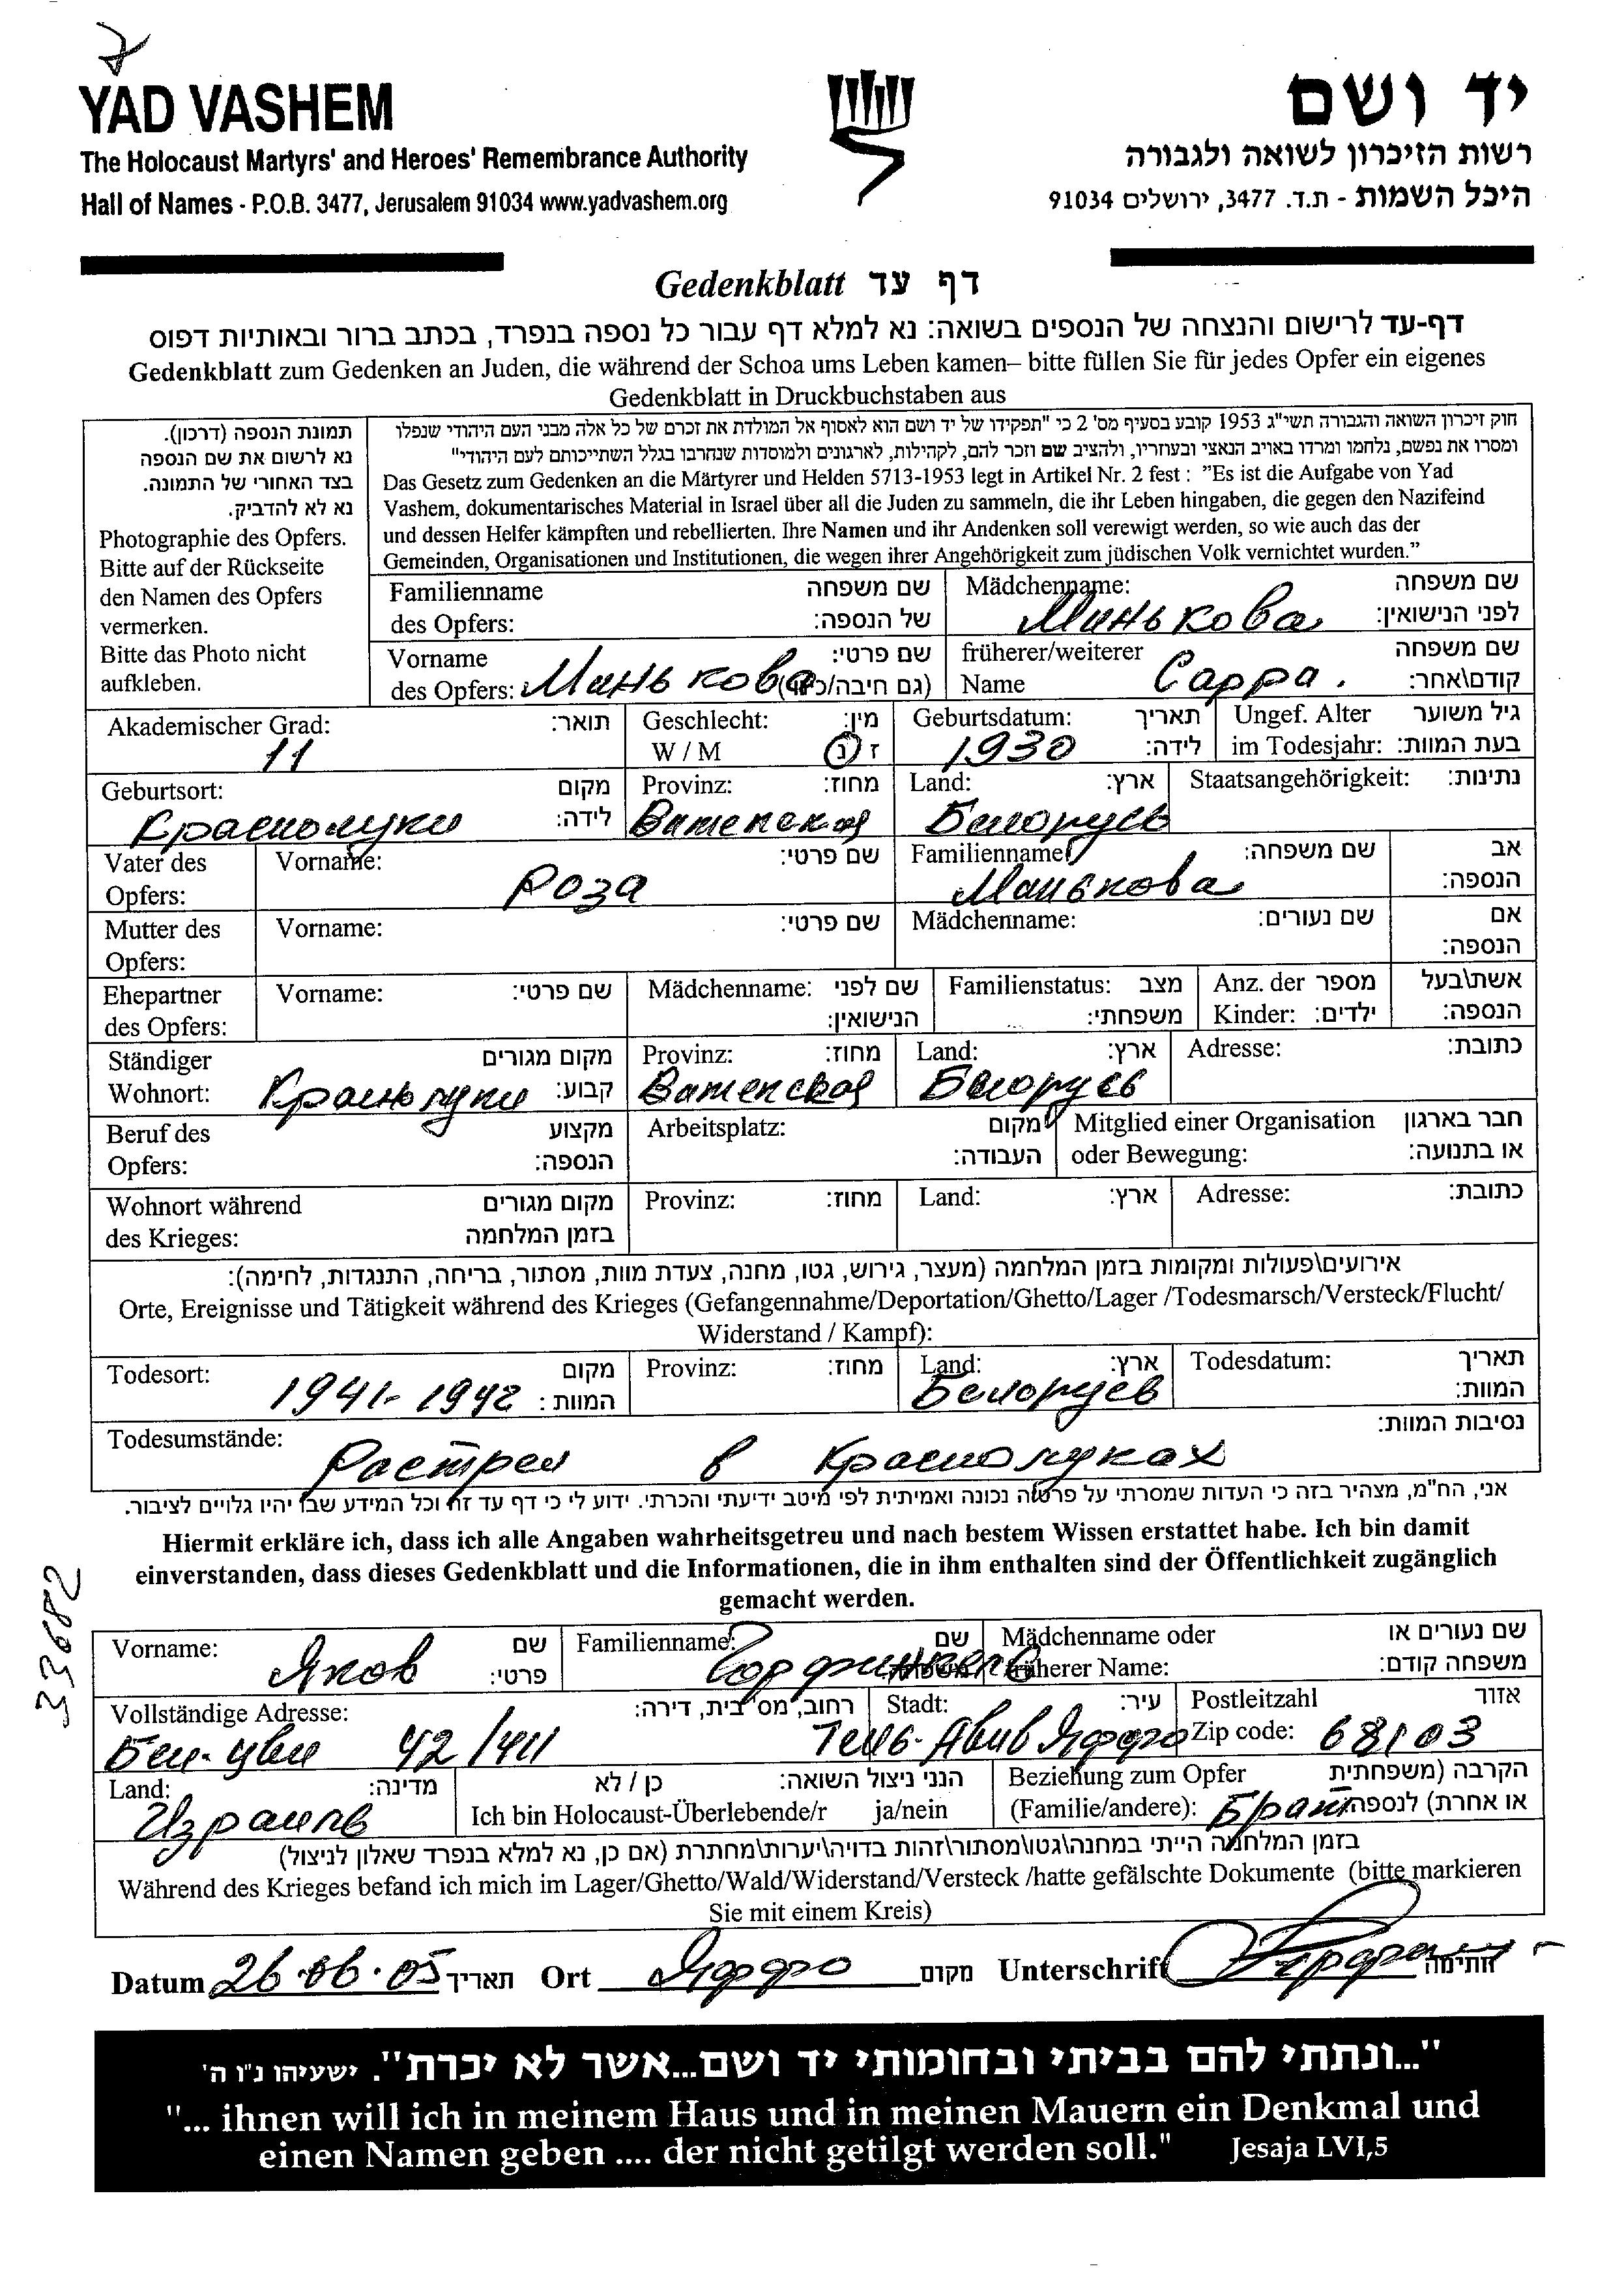 YAD VASHEM
יד ושם
The Holocaust Martyrs' and Heroes' Remembrance Authority
רשות הזיכרון לשואה ולגבורה
Hall of Names - P.O.B. 3477, Jerusalem 91034 www.yadvashem.org
היכל השמות - ת.ד. 3477, ירושלים 91034
Gedenkblatt דף עד
דף-עד לרישום והנצחה של הנספים בשואה: נא למלא דף עבור כל נספה בנפרד, בכתב ברור ובאותיות דפוס
Gedenkblatt zum Gedenken an Juden, die während der Schoa ums Leben kamen– bitte füllen Sie für jedes Opfer ein eigenes
Gedenkblatt in Druckbuchstaben aus
תמונת הנספה (דרכון).
נא לרשום את שם הנספה
בצד האחורי של התמונה.
נא לא להדביק.
Photographie des Opfers.
Bitte auf der Rückseite
den Namen des Opfers
vermerken.
Bitte das Photo nicht
aufkleben.
חוק זיכרון השואה והגבורה תשי"ג 1953 קובע בסעיף מס' 2 כי "תפקידו של יד ושם הוא לאסוף אל המולדת את זכרם של כל אלה מבני העם היהודי שנפלו
ומסרו את נפשם, נלחמו ומרדו באויב הנאצי ובעוזריו, ולהציב שם וזכר להם, לקהילות, לארגונים ולמוסדות שנחרבו בגלל השתייכותם לעם היהודי"
Das Gesetz zum Gedenken an die Märtyrer und Helden 5713-1953 legt in Artikel Nr. 2 fest : "Es ist die Aufgabe von Yad
Vashem, dokumentarisches Material in Israel über all die Juden zu sammeln, die ihr Leben hingaben, die gegen den Nazifeind
und dessen Helfer kämpften und rebellierten. Ihre Namen und ihr Andenken soll verewigt werden, so wie auch das der
Gemeinden, Organisationen und Institutionen, die wegen ihrer Angehörigkeit zum jüdischen Volk vernichtet wurden."
Familienname שם משפחה
des Opfers: של הנספה:
Mädchenname: שם משפחה
Минькова לפני הנישואין:
Vorname שם פרטי:
des Opfers: Минькова (גם חיבה/
früherer/weiterer שם משפחה
Name Сарра. קודם\אחר:
Akademischer Grad: תואר:
11
Geschlecht: מין:
W / M ז / נ
Geburtsdatum: תאריך
1930 לידה:
Ungef. Alter גיל משוער
im Todesjahr: בעת המוות:
Geburtsort: מקום
Краснолуки לידה:
Provinz: מחוז:
Витепская
Land: ארץ:
Белорусь
Staatsangehörigkeit: נתינות:
Vater des Vorname: שם פרטי: Familienname שם משפחה: אב
Opfers: Роза Манькова הנספה:
Mutter des Vorname: שם פרטי: Mädchenname: שם נעורים: אם
Opfers: הנספה:
Ehepartner Vorname: שם פרטי: Mädchenname: שם לפני Familienstatus: מצב Anz. der מספר אשת\בעל
des Opfers: הנישואין: משפחתי: Kinder: ילדים: הנספה:
Ständiger מקום מגורים Provinz: מחוז: Land: ארץ: Adresse: כתובת:
Wohnort: Краснолуки קבוע: Витепская Белорусь
Beruf des מקצוע Arbeitsplatz: מקום Mitglied einer Organisation חבר בארגון
Opfers: הנספה: העבודה: oder Bewegung: או בתנועה:
Wohnort während מקום מגורים Provinz: מחוז: Land: ארץ: Adresse: כתובת:
des Krieges: בזמן המלחמה
אירועים\פעולות ומקומות בזמן המלחמה (מעצר, גירוש, גטו, מחנה, צעדת מוות, מסתור, בריחה, התנגדות, לחימה):
Orte, Ereignisse und Tätigkeit während des Krieges (Gefangennahme/Deportation/Ghetto/Lager /Todesmarsch/Versteck/Flucht/
Widerstand / Kampf):
Todesort: מקום Provinz: מחוז: Land: ארץ: Todesdatum: תאריך
1941-1942 המוות: Белорусь המוות:
Todesumstände: נסיבות המוות:
Растрел в Краснолуках
אני, הח"מ, מצהיר בזה כי העדות שמסרתי על פרטיה נכונה ואמיתית לפי מיטב ידיעתי והכרתי. ידוע לי כי דף עד זה וכל המידע שבו יהיו גלויים לציבור.
Hiermit erkläre ich, dass ich alle Angaben wahrheitsgetreu und nach bestem Wissen erstattet habe. Ich bin damit
einverstanden, dass dieses Gedenkblatt und die Informationen, die in ihm enthalten sind der Öffentlichkeit zugänglich
gemacht werden.
33682
Vorname: שם Familienname: שם Mädchenname oder שם נעורים או
Яков פרטי: Горфинкель früherer Name: משפחה קודם:
Vollständige Adresse: רחוב, מס' בית, דירה: Stadt: עיר: Postleitzahl אזור
Бен-Цви 42/411 Тель-Авив Яффо Zip code: 68103
Land: מדינה: הנני ניצול השואה: כן / לא Beziehung zum Opfer הקרבה (משפחתית
Израиль Ich bin Holocaust-Überlebende/r ja/nein (Familie/andere): Брат או אחרת) לנספה:
בזמן המלחמה הייתי במחנה\גטו\מסתור\זהות בדויה\יערות\מחתרת (אם כן, נא למלא בנפרד שאלון לניצול)
Während des Krieges befand ich mich im Lager/Ghetto/Wald/Widerstand/Versteck /hatte gefälschte Dokumente (bitte markieren
Sie mit einem Kreis)
Datum 26.06.05 תאריך Ort Яффо מקום Unterschrift חתימה
"...ונתתי להם בביתי ובחומותי יד ושם...אשר לא יכרת". ישעיהו נ"ו ה'
"... ihnen will ich in meinem Haus und in meinen Mauern ein Denkmal und
einen Namen geben .... der nicht getilgt werden soll." Jesaja LVI,5